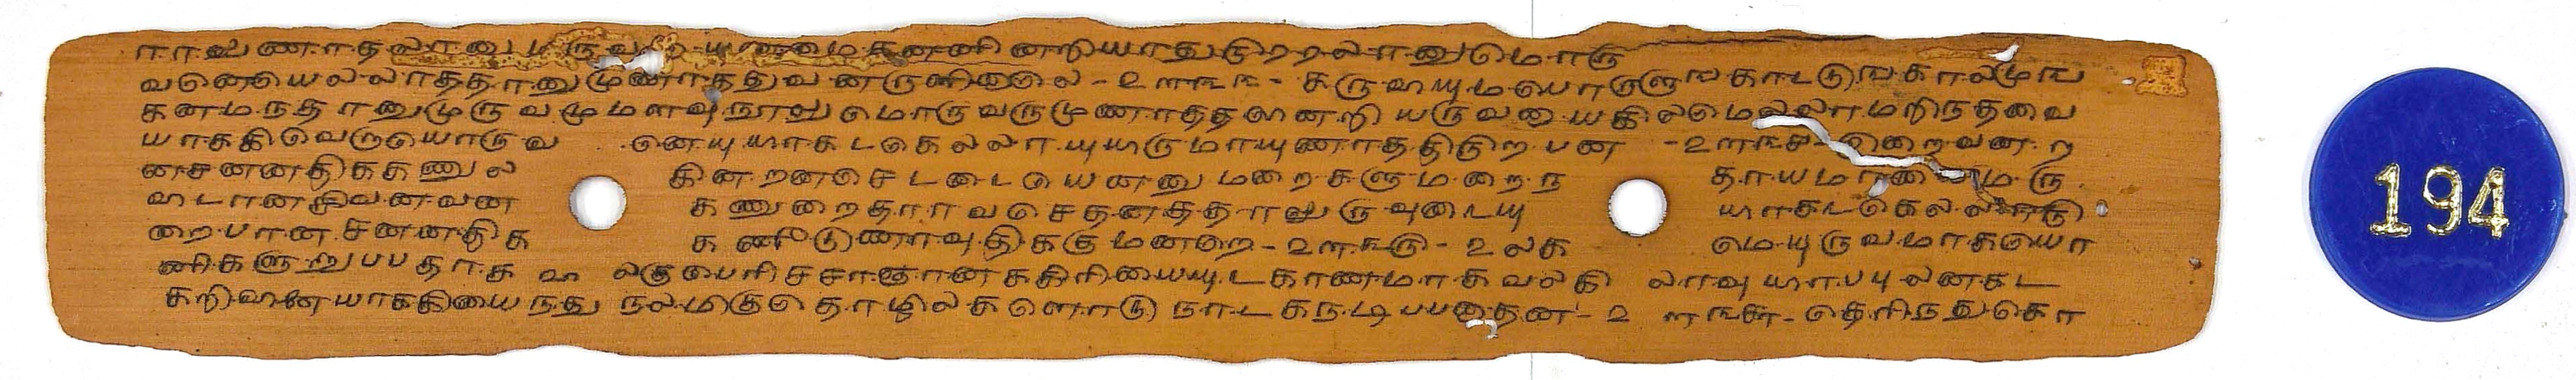 ரரவுணாதலானு முருவ யுணமை தனணினறியாதுகுறறலானுமொரு
வனெயெலலாததானுமுணாததுவனருளினாலெ - உ௱௩௩ - கருவயுமபொருளுஙகாட்டுஙகாலமுங
கனமநதானுமுருவமுமளவுநூலுமொருவருமுணாததலனறி யருவனு யகிலமெலலாமறிநதவை
யாககிவெறுயொருவ னெயுயாகடகெலலாயுயருமாயுணாததிடுறபன - உ௱௩௪ - இறைவனற
னசனனதிககணுல கினறனசெடடையெனனு மறைகளுமறைந தாயமான மரு
வடானகிவனவன கணுறைதாரவசெதனததாலுருவுடையு யாகடகெலலாநடு
றைபானசனனதிக கணிடுணாவுதிககுமனறெ - உ௱௩௫ - உலக மெயுருவமாகயொ
ணிகளுறுபபதாக வ லகுபெரிசசாஞானககிரியையுடகாணமாகவலகி லாவுயாபபுலனகட
கறிவினேயாககியைநது நலமிகுதொழிலகளொடு நாடகநடிபபதைன - உ ௱௩௬ - தெரிநதுகொ
194